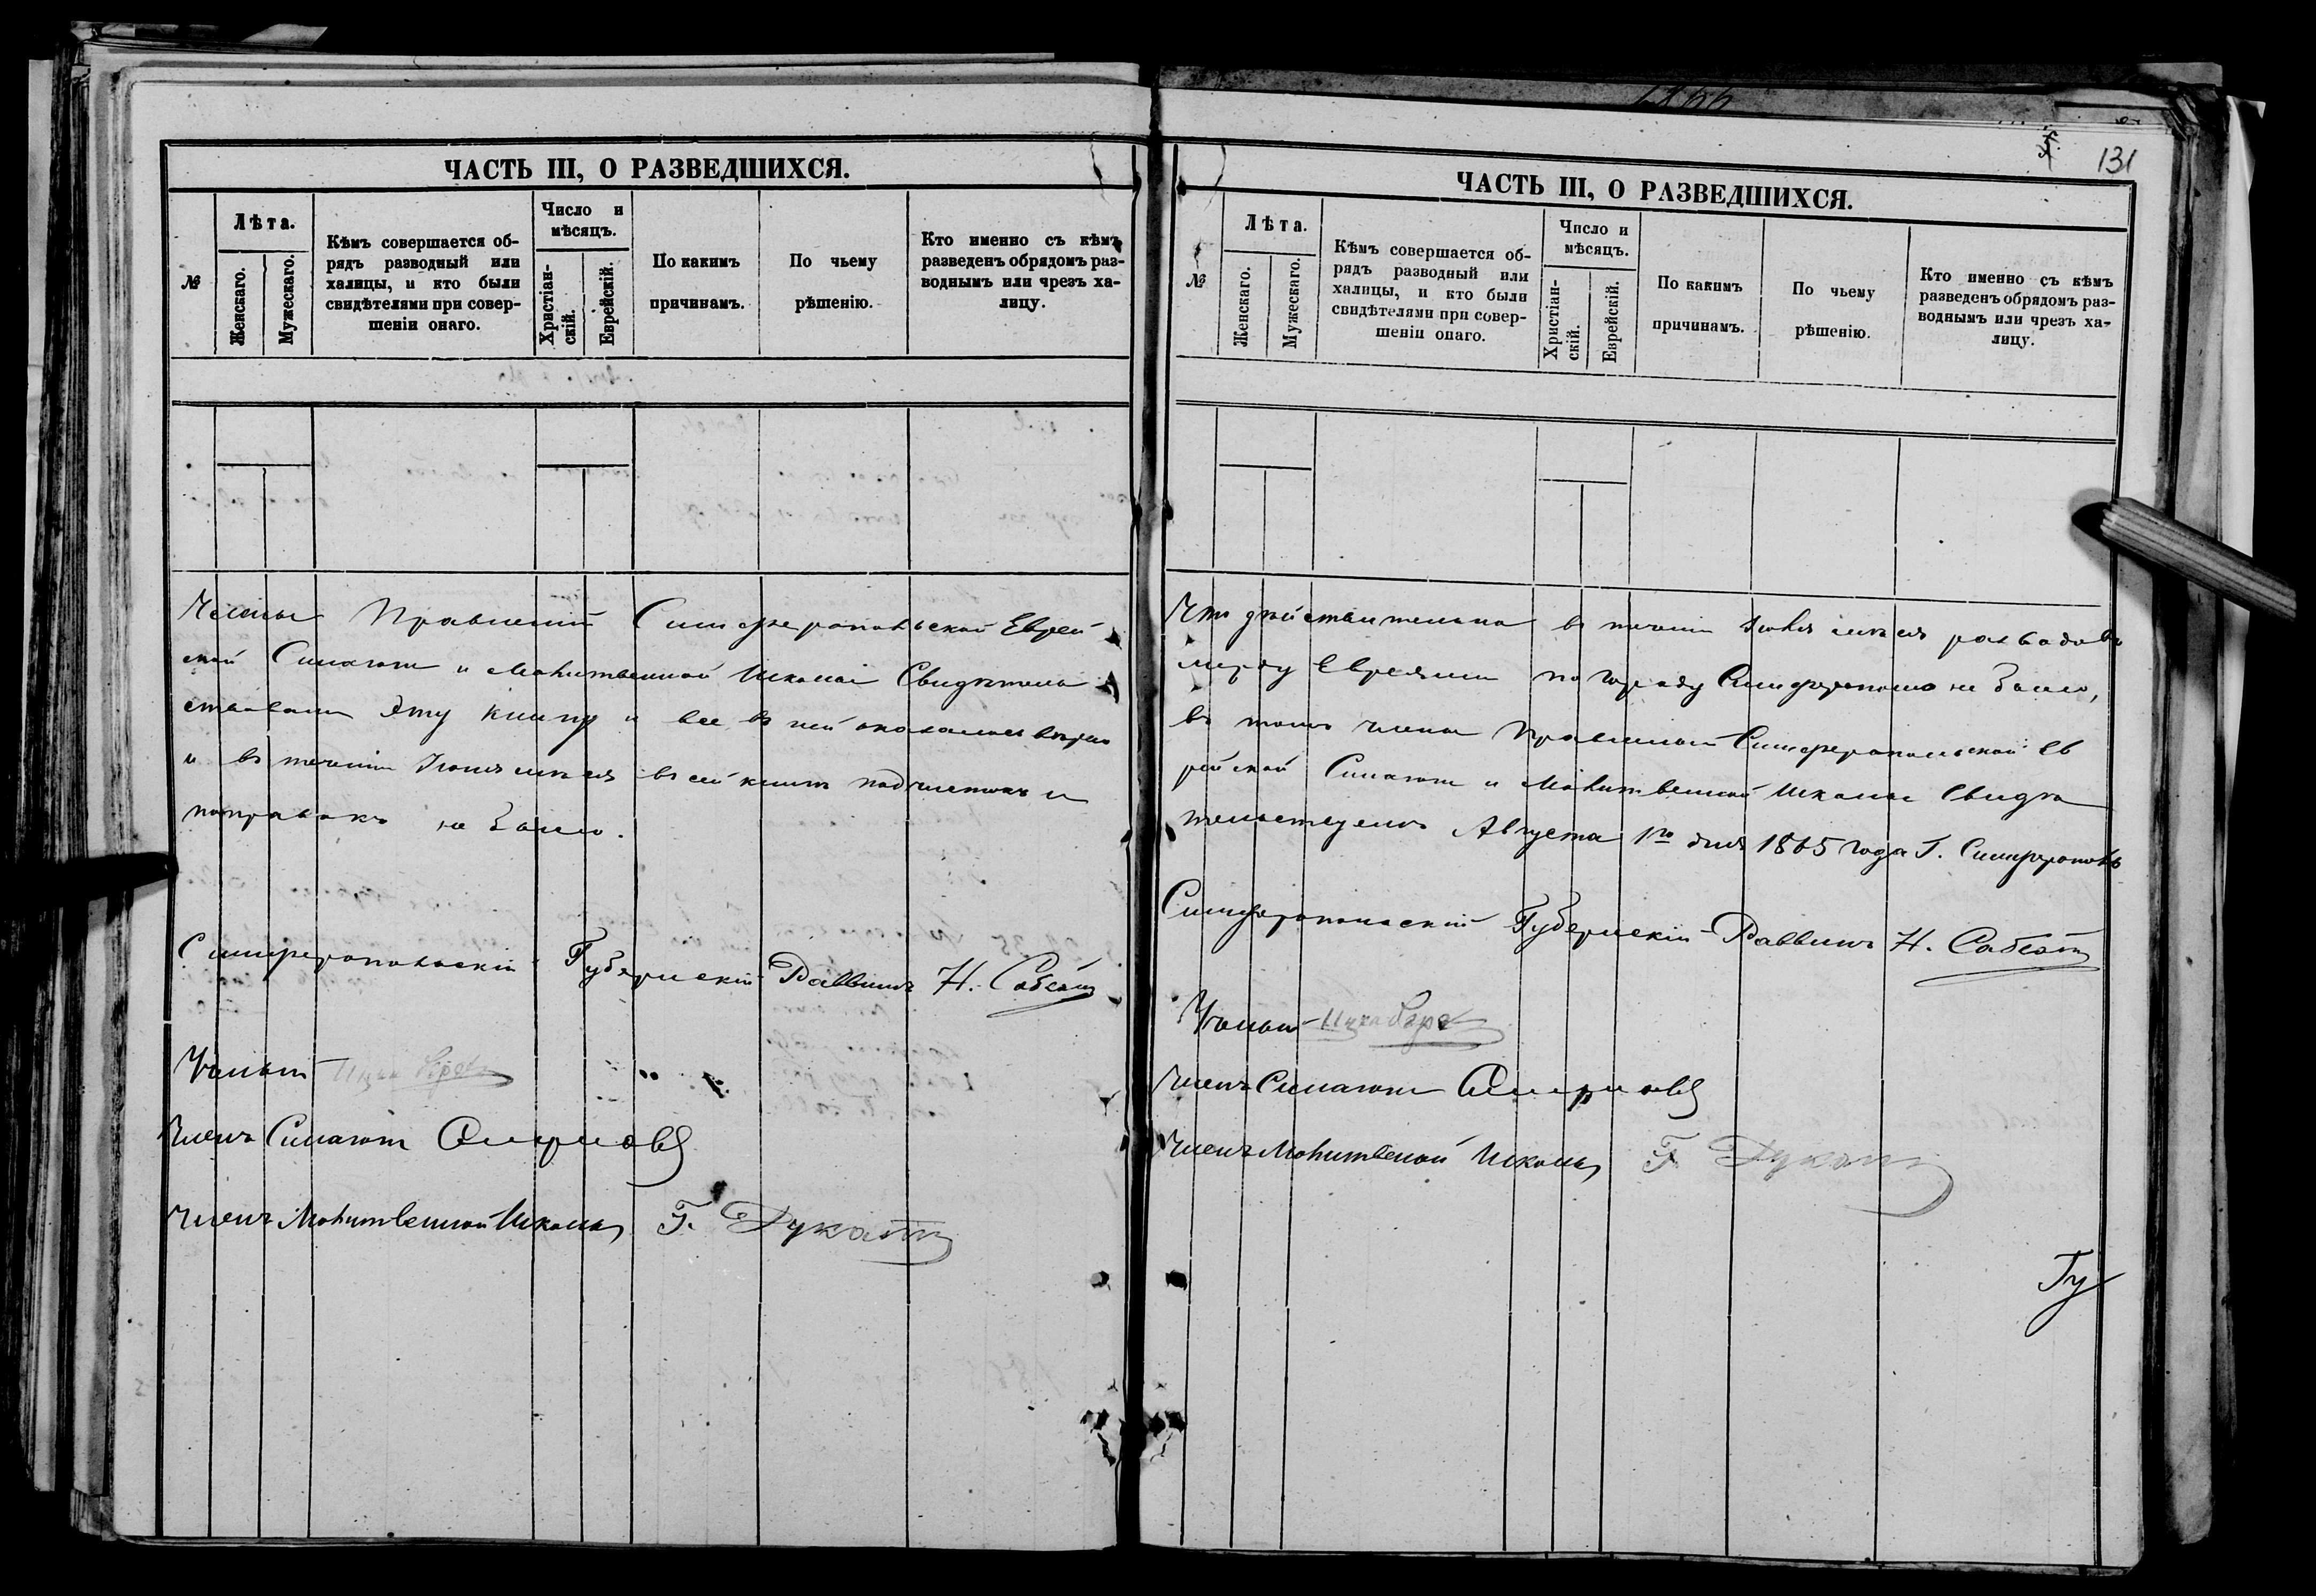 ЧАСТЬ III, О РАЗВЕДШИХСЯ.
№
Лѣта.
Женскаго.
Мужескаго.
Кѣмъ совершается об-
рядъ разводный или
халицы, и кто были
свидѣтелями при совер-
шеніи онаго.
Число и
мѣсяцъ.
Христіан-
скій.
Еврейскій.
По какимъ
причинамъ.
По чьему
рѣшенію.
Кто именно съ кѣмъ
разведенъ обрядомъ раз-
воднымъ или чрезъ ха-
лицу.
Члены Правленій Симферопольской Еврей
ской Синагоги и Молитвенной Школы Свидѣтель
ствовали Эту книгу и все въ ней оказалось вѣрно
и въ теченіи мѣсяца въ сей книгѣ подчистокъ и
поправокъ не было.
Симферопольскій Губернскій Раввинъ Н. Собсатъ
Членъ Синагоги
Членъ Молитвенной Школы Г. Дукатъ
131
ЧАСТЬ III, О РАЗВЕДШИХСЯ.
№
Лѣта.
Женскаго.
Мужескаго.
Кѣмъ совершается об-
рядъ разводный или
халицы, и кто были
свидѣтелями при совер-
шеніи онаго.
Число и
мѣсяцъ.
Христіан-
скій.
Еврейскій.
По какимъ
причинамъ.
По чьему
рѣшенію.
Кто именно съ кѣмъ
разведенъ обрядомъ раз-
воднымъ или чрезъ ха-
лицу.
Что дѣйствительно въ теченіи Іюля мѣсяца разводовъ
между Евреями по городу Симферополю не было,
въ томъ члены Правленій Симферопольской Ев
рейской Синагоги и Молитвенной Школы Свидѣ
тельствуемъ Августа 1го дня 1865 года Г. Симферополь
Симферопольскій Губернскій Раввинъ Н. Собсатъ
Членъ Синагоги
Членъ Молитвенной Школы Г. Дукатъ
Гу